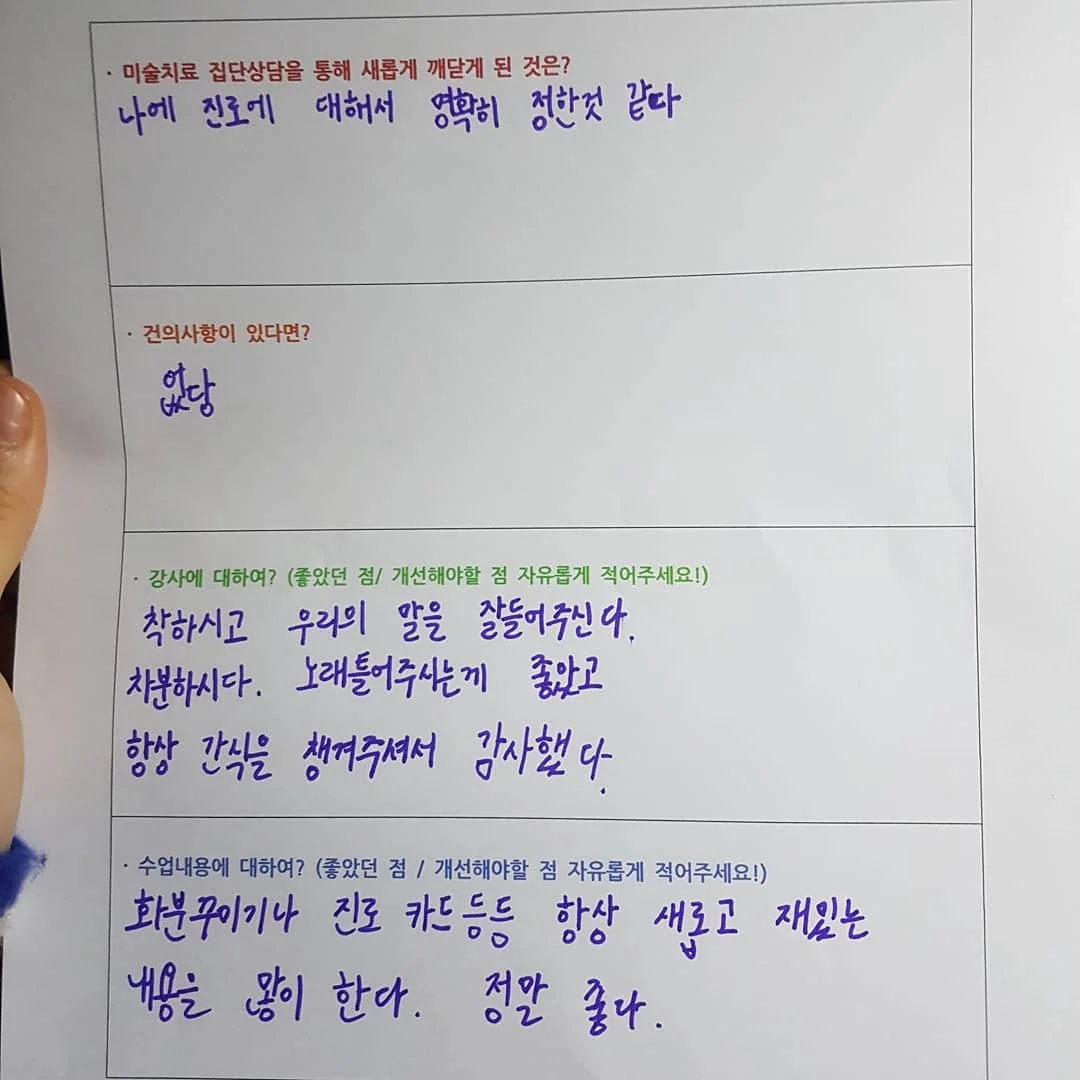 · 미술치료 집단상담을 통해 새롭게 깨닫게 된 것은?
나에 진로에 대해서 명확히 정한것 같다
· 건의사항이 있다면?
없당
· 강사에 대하여? (좋았던 점/ 개선해야할 점 자유롭게 적어주세요!)
착하시고 우리의 말을 잘들어주신다.
차분하시다. 노래틀어주시는게 좋았고
항상 간식을 챙겨주셔서 감사했다.
· 수업내용에 대하여? (좋았던 점 / 개선해야할 점 자유롭게 적어주세요!)
화분꾸미기나 진로 카드등등 항상 새롭고 재밌는
내용을 많이 한다. 정말 좋다.